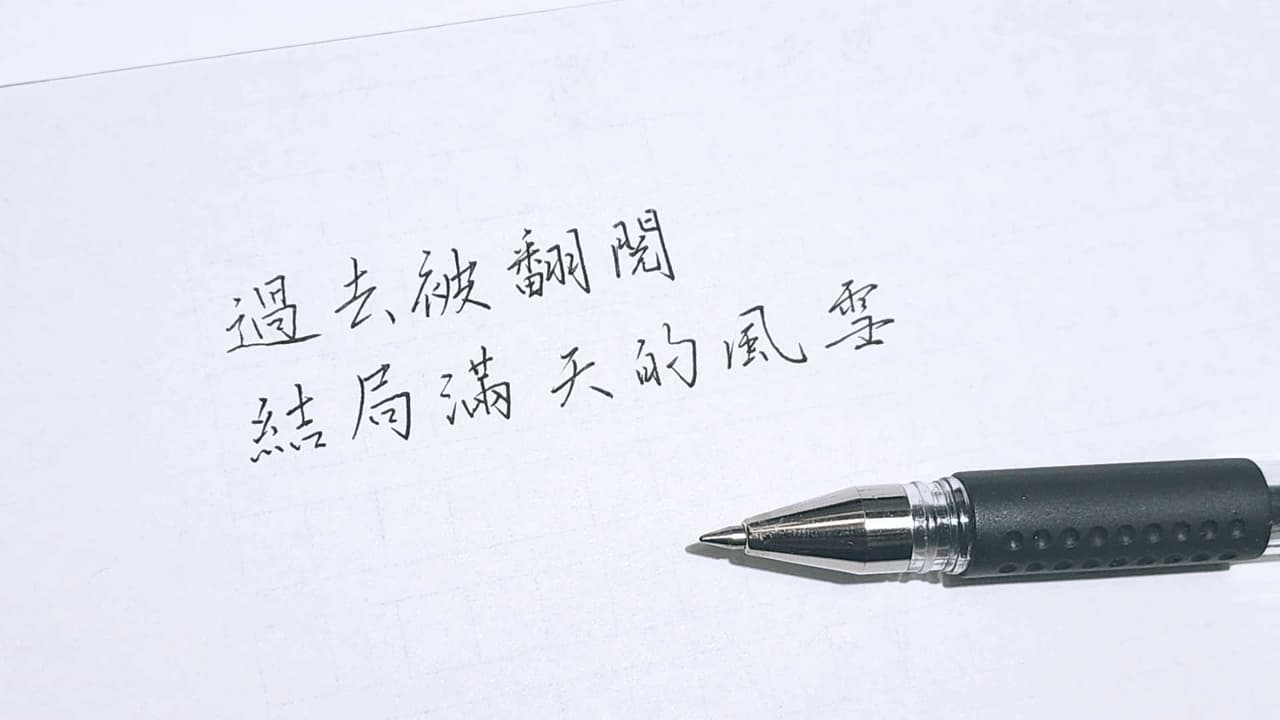 過去被翻閱
結局滿天的風雪